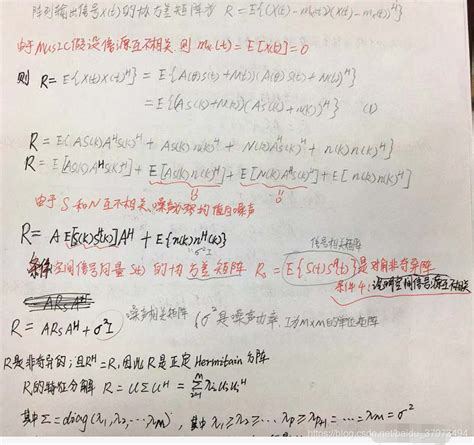 阵列输出信号X(t)的协方差矩阵为 R = E{(X(t)-mₓ(t))(X(t)-mₓ(t))ᴴ}
由于MUSIC假设信源互不相关. 则 mₓ(t) = E[X(t)] = 0
则 R = E{X(t)X(t)ᴴ} = E{(A(θ)S(t)+N(t))(A(θ)S(t)+N(t))ᴴ}
= E{(AS(k)+N(k))(AS(k)+N(k))ᴴ} (1)
R = E{AS(k)AᴴS(k)ᴴ + AS(k)n(k)ᴴ + N(k)AᴴS(k)ᴴ + n(k)n(k)ᴴ}
R = E[AS(k)AᴴS(k)ᴴ] + E[AS(k)n(k)ᴴ] + E[N(k)AᴴS(k)ᴴ] + E[n(k)n(k)ᴴ]
0 0
由于 S和N互不相关, 噪声为零均值白噪声
R = A E[S(k)Sᴴ(k)]Aᴴ + E{n(k)nᴴ(k)}
σ²I 信号相关矩阵
条件 空间信号向量 S(t) 的协方差矩阵 Rₛ = E{S(t)Sᴴ(t)} 是对角非奇异阵
条件4: 说明空间信号源互不相关
ARₛAᴴ
R = ARₛAᴴ + σ²I 噪声相关矩阵 (σ²是噪声功率, I为M×M的单位矩阵
R是非奇异的; 且Rᴴ=R, 因此R是正定Hermitain方阵
R的特征分解 R = UΣUᴴ = Σᵢ₌₁ᵐ λᵢuᵢuᵢᴴ
其中 Σ = diag(λ₁, λ₂, … λₘ), 其中 λ₁ ≥ λ₂ ≥ … λₚ ≥ λₚ₊₁ = … = λₘ = σ²
https://blog.csdn.net/baidu_37973494